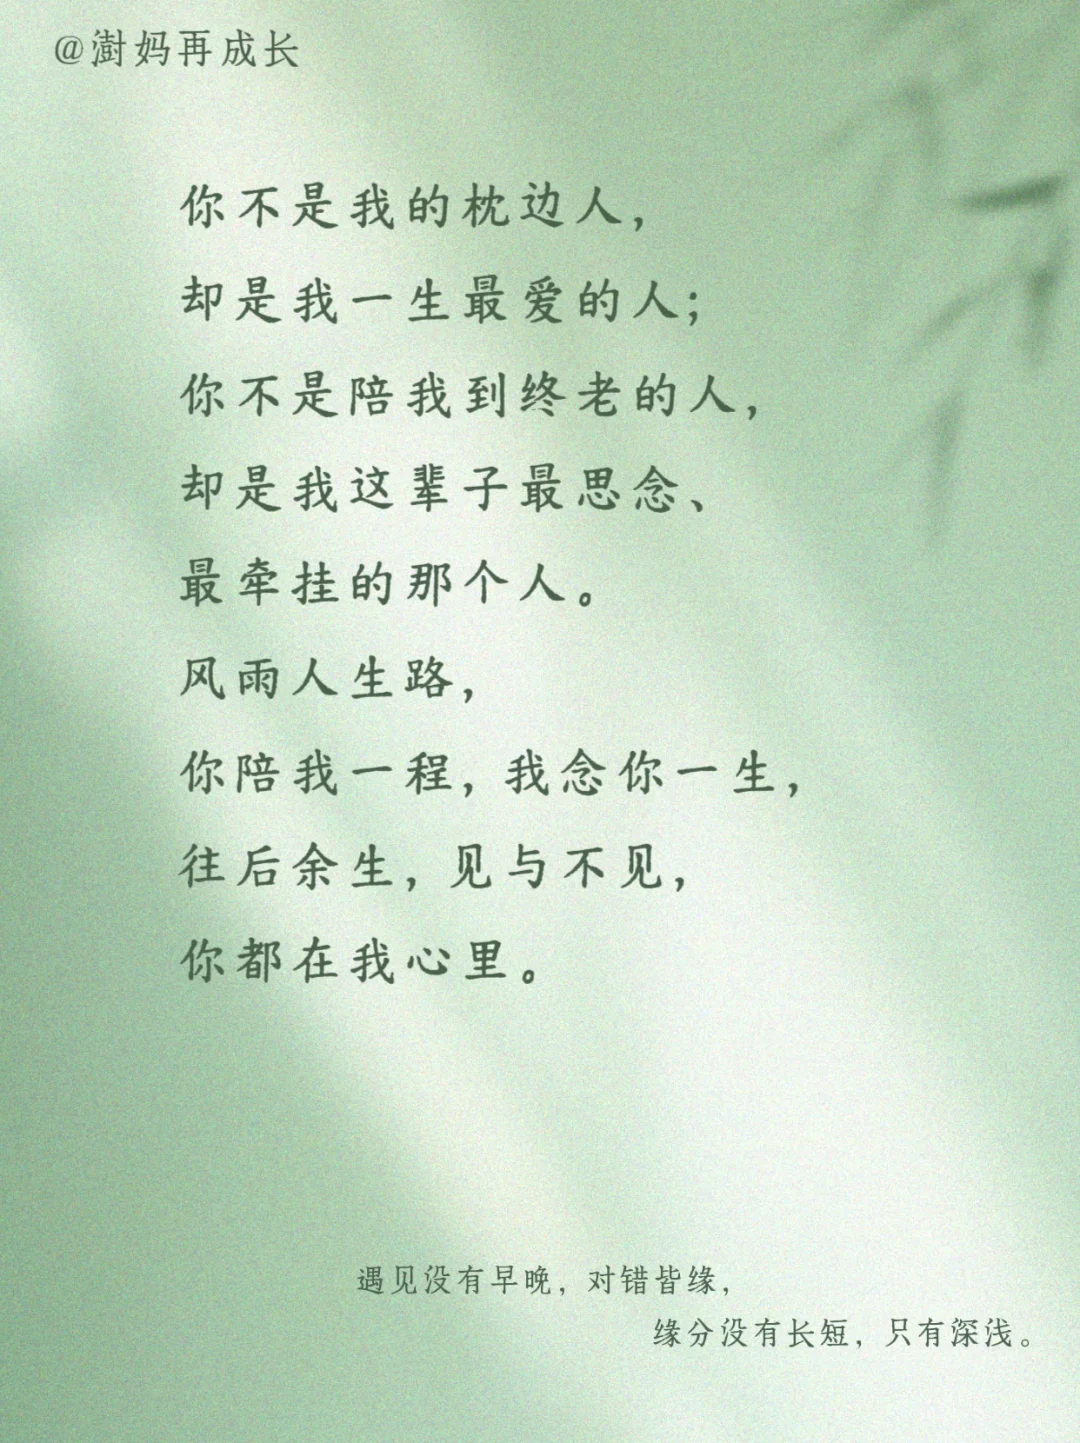 @澍妈再成长
你不是我的枕边人，
却是我一生最爱的人；
你不是陪我到终老的人，
却是我这辈子最思念、
最牵挂的那个人。
风雨人生路，
你陪我一程，我念你一生，
往后余生，见与不见，
你都在我心里。
遇见没有早晚，对错皆缘，
缘分没有长短，只有深浅。